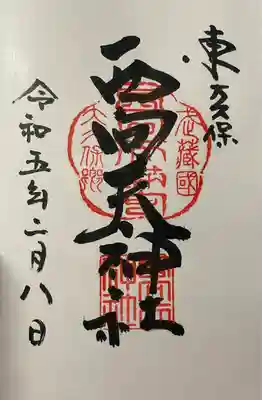 東大久保
西向天神社
令和五年二月八日
武藏國
大久保郷